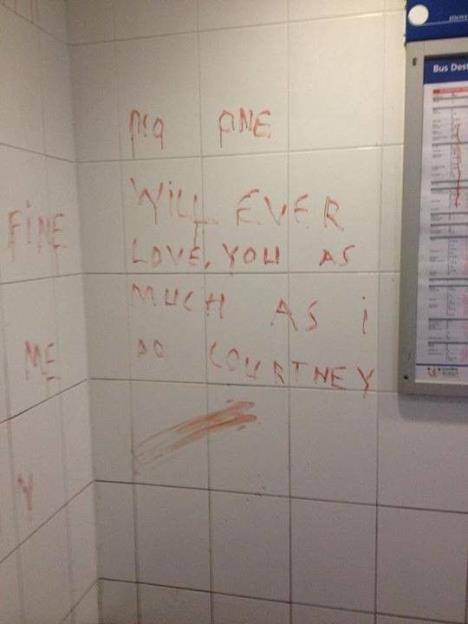 FiNE
ME
Y
No ONE
WiLL EVER
LOVE, YOU AS
MUCH AS i
DO COURTNEY
Bus Dest